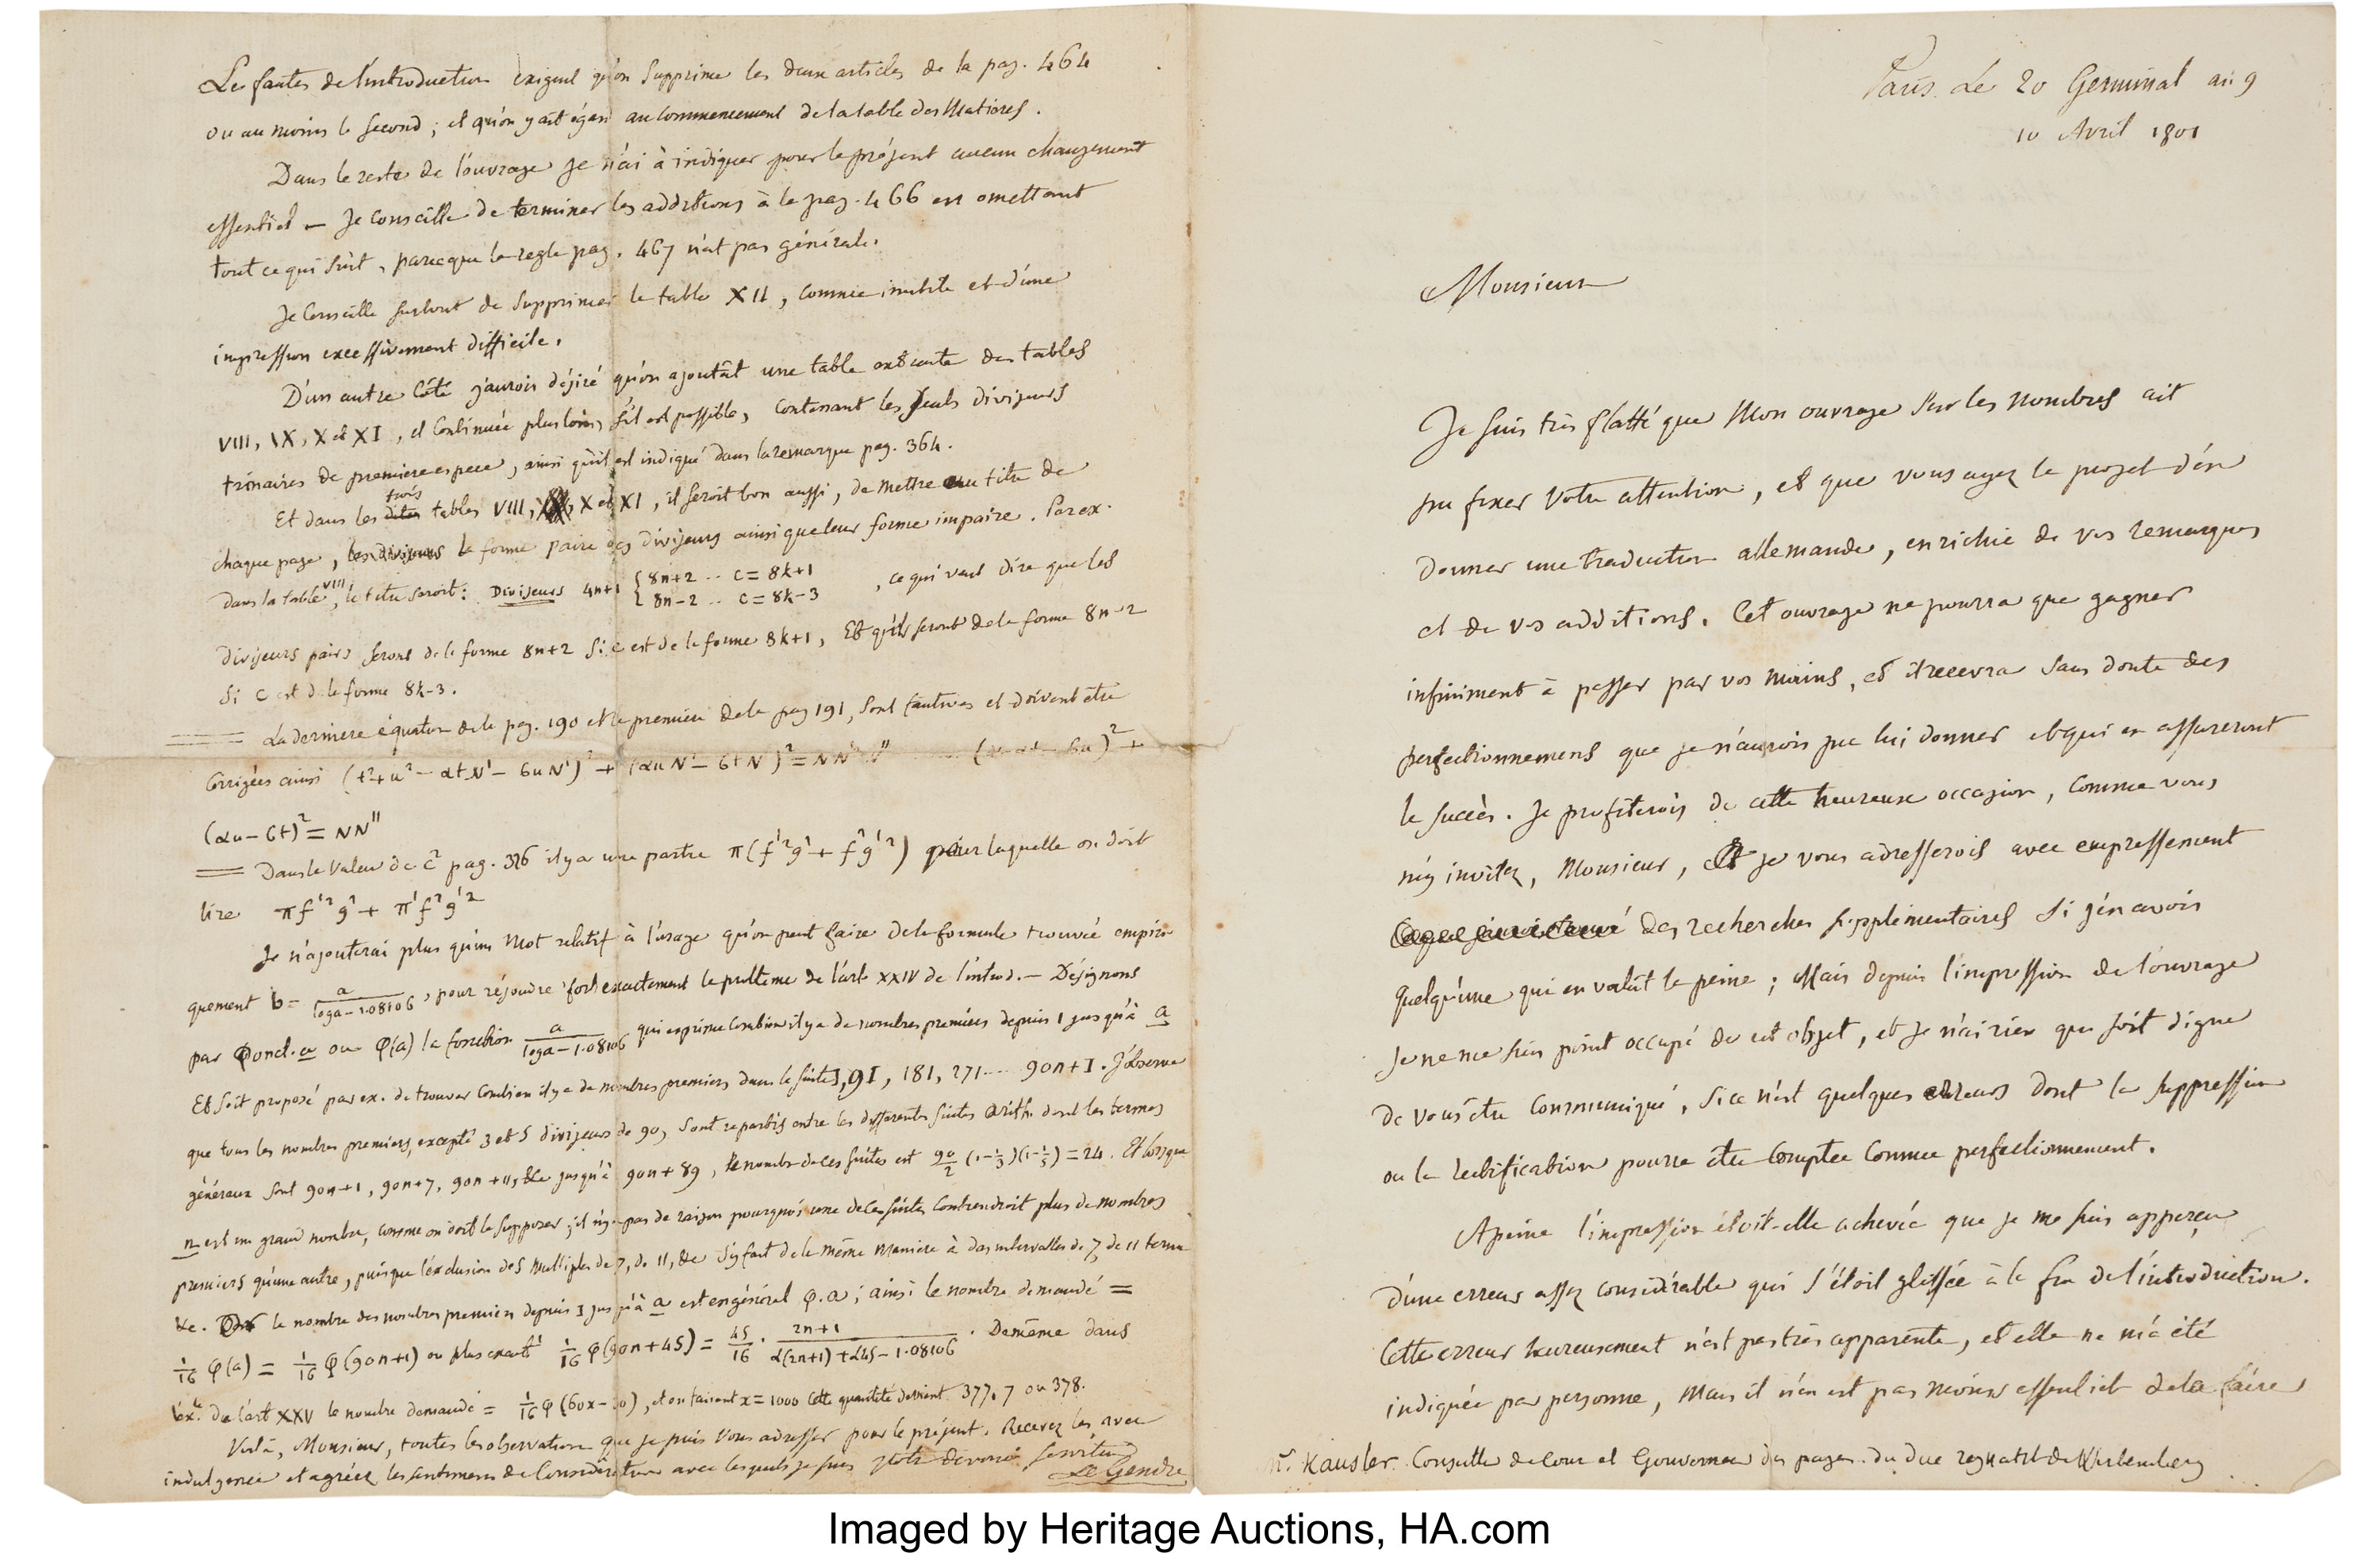 Paris Le 20 Germinal an 9
10 Avril 1801
Monsieur
Je suis très flatté que mon ouvrage sur les nombres ait
pu fixer votre attention, et que vous ayez le projet d'en
donner une traduction allemande, enrichie de vos remarques
et de vos additions. Cet ouvrage ne pourra que gagner
infiniment à passer par vos mains, et il recevra sans doute des
perfectionnemens que je n'aurois pu lui donner et qui en assureront
le succès. Je profiterois de cette heureuse occasion, comme vous
m'y invitez, Monsieur, et je vous adresserois avec empressement
des recherches supplémentaires si j'en avois
quelqu'une qui en valût la peine ; mais depuis l'impression de l'ouvrage
je ne me suis point occupé de cet objet, et je n'ai rien qui soit digne
de vous être communiqué, si ce n'est quelques erreurs dont la suppression
ou la rectification pourra être comptée comme perfectionnement.
A peine l'impression étoit-elle achevée que je me suis apperçu
d'une erreur assez considérable qui s'étoit glissée à la fin de l'introduction.
Cette erreur heureusement n'est pas très apparente, et elle ne m'a été
indiquée par personne, mais il n'en est pas moins essentiel de la faire
Mr. Kausler Conseiller de Cour et Gouverneur des pages du Duc regnant de Wirtemberg
Les fautes de l'introduction exigent qu'on supprime les deux articles de la pag. 464
ou au moins le second ; et qu'on y ait égard au commencement de la table des Matieres.
Dans le reste de l'ouvrage je n'ai à indiquer pour le présent aucun changement
essentiel — Je conseille de terminer les additions à la pag. 466 en omettant
tout ce qui suit, parceque la regle pag. 467 n'est pas générale.
Je conseille surtout de supprimer la table XII, comme inutile et d'une
impression excessivement difficile.
D'un autre côté j'aurois désiré qu'on ajoutât une table extraite des tables
VIII, IX, X et XI, et continuée plus loin, s'il est possible, contenant les seuls diviseurs
trinaires de premiere espece, ainsi qu'il est indiqué dans la remarque pag. 364.
Et dans les trois tables VIII, X et XI, il seroit bon aussi, de mettre au titre de
chaque page, la forme paire des diviseurs ainsi que leur forme impaire. Par ex.
dans la table VIII, le titre seroit : Diviseurs 4n+1 { 8n+2 .. c = 8k+1
8n-2 .. c = 8k-3 , ce qui veut dire que les
diviseurs pairs seront de la forme 8n+2 si c est de la forme 8k+1, et qu'ils seront de la forme 8n-2
si c est de la forme 8k-3.
La derniere équation de la pag. 190 et la premiere de la pag 191, sont fautives et doivent être
corrigées ainsi (t²+u² - αtN' - 6uN')² + (αuN' - 6tN')² = NN'N'' (
)² +
(αu - 6t)² = NN''
Dans la valeur de c² pag. 326 il y a une partie π(f'²g² + f²g'²) pour laquelle on doit
lire πf'²g² + π'f²g'²
Je n'ajouterai plus qu'un mot relatif à l'usage qu'on peut faire de la formule trouvée empiri-
quement b = a / log a - 1.08106, pour résoudre fort exactement le probleme de l'art XXIV de l'introd. — Désignons
par Φonct. a ou φ(a) la fonction a / log a - 1.08106 qui exprime combien il y a de nombres premiers depuis 1 jusqu'à a
Et soit proposé par ex. de trouver combien il y a de nombres premiers dans la suite 1, 91, 181, 271 .... 90n+1. J'observe
que tous les nombres premiers, excepté 3 et 5 diviseurs de 90, sont repartis entre les differentes suites arith. dont les termes
généraux sont 90n+1, 90n+7, 90n+11, &c jusqu'à 90n+89, le nombre de ces suites est 90/2 (1-1/3)(1-1/5) = 24. Et lorsque
n est un grand nombre, comme on doit le supposer, il n'y a pas de raison pourquoi une de ces suites contiendroit plus de nombres
premiers qu'une autre, puisque l'exclusion des multiples de 7, de 11, &c s'y fait de la même maniere à des intervalles de 7, de 11 termes
&c. Or le nombre des nombres premiers depuis 1 jusqu'à a est en général φ.a ; ainsi le nombre demandé =
1/16 φ(a) = 1/16 φ(90n+1) ou plus exactt 1/16 φ(90n+45) = 45/16 . 2n+1 / l(2n+1) + l45 - 1.08106 . De même dans
l'ex. de l'art XXV le nombre demandé = 1/16 φ(60x-30), et en faisant x=1000 cette quantité devient 377.7 ou 378.
Voilà, Monsieur, toutes les observations que je puis vous adresser pour le présent. Recevez les avec
indulgence et agréez les sentimens de considération avec lesquels je suis votre devoué serviteur
Le Gendre
Imaged by Heritage Auctions, HA.com